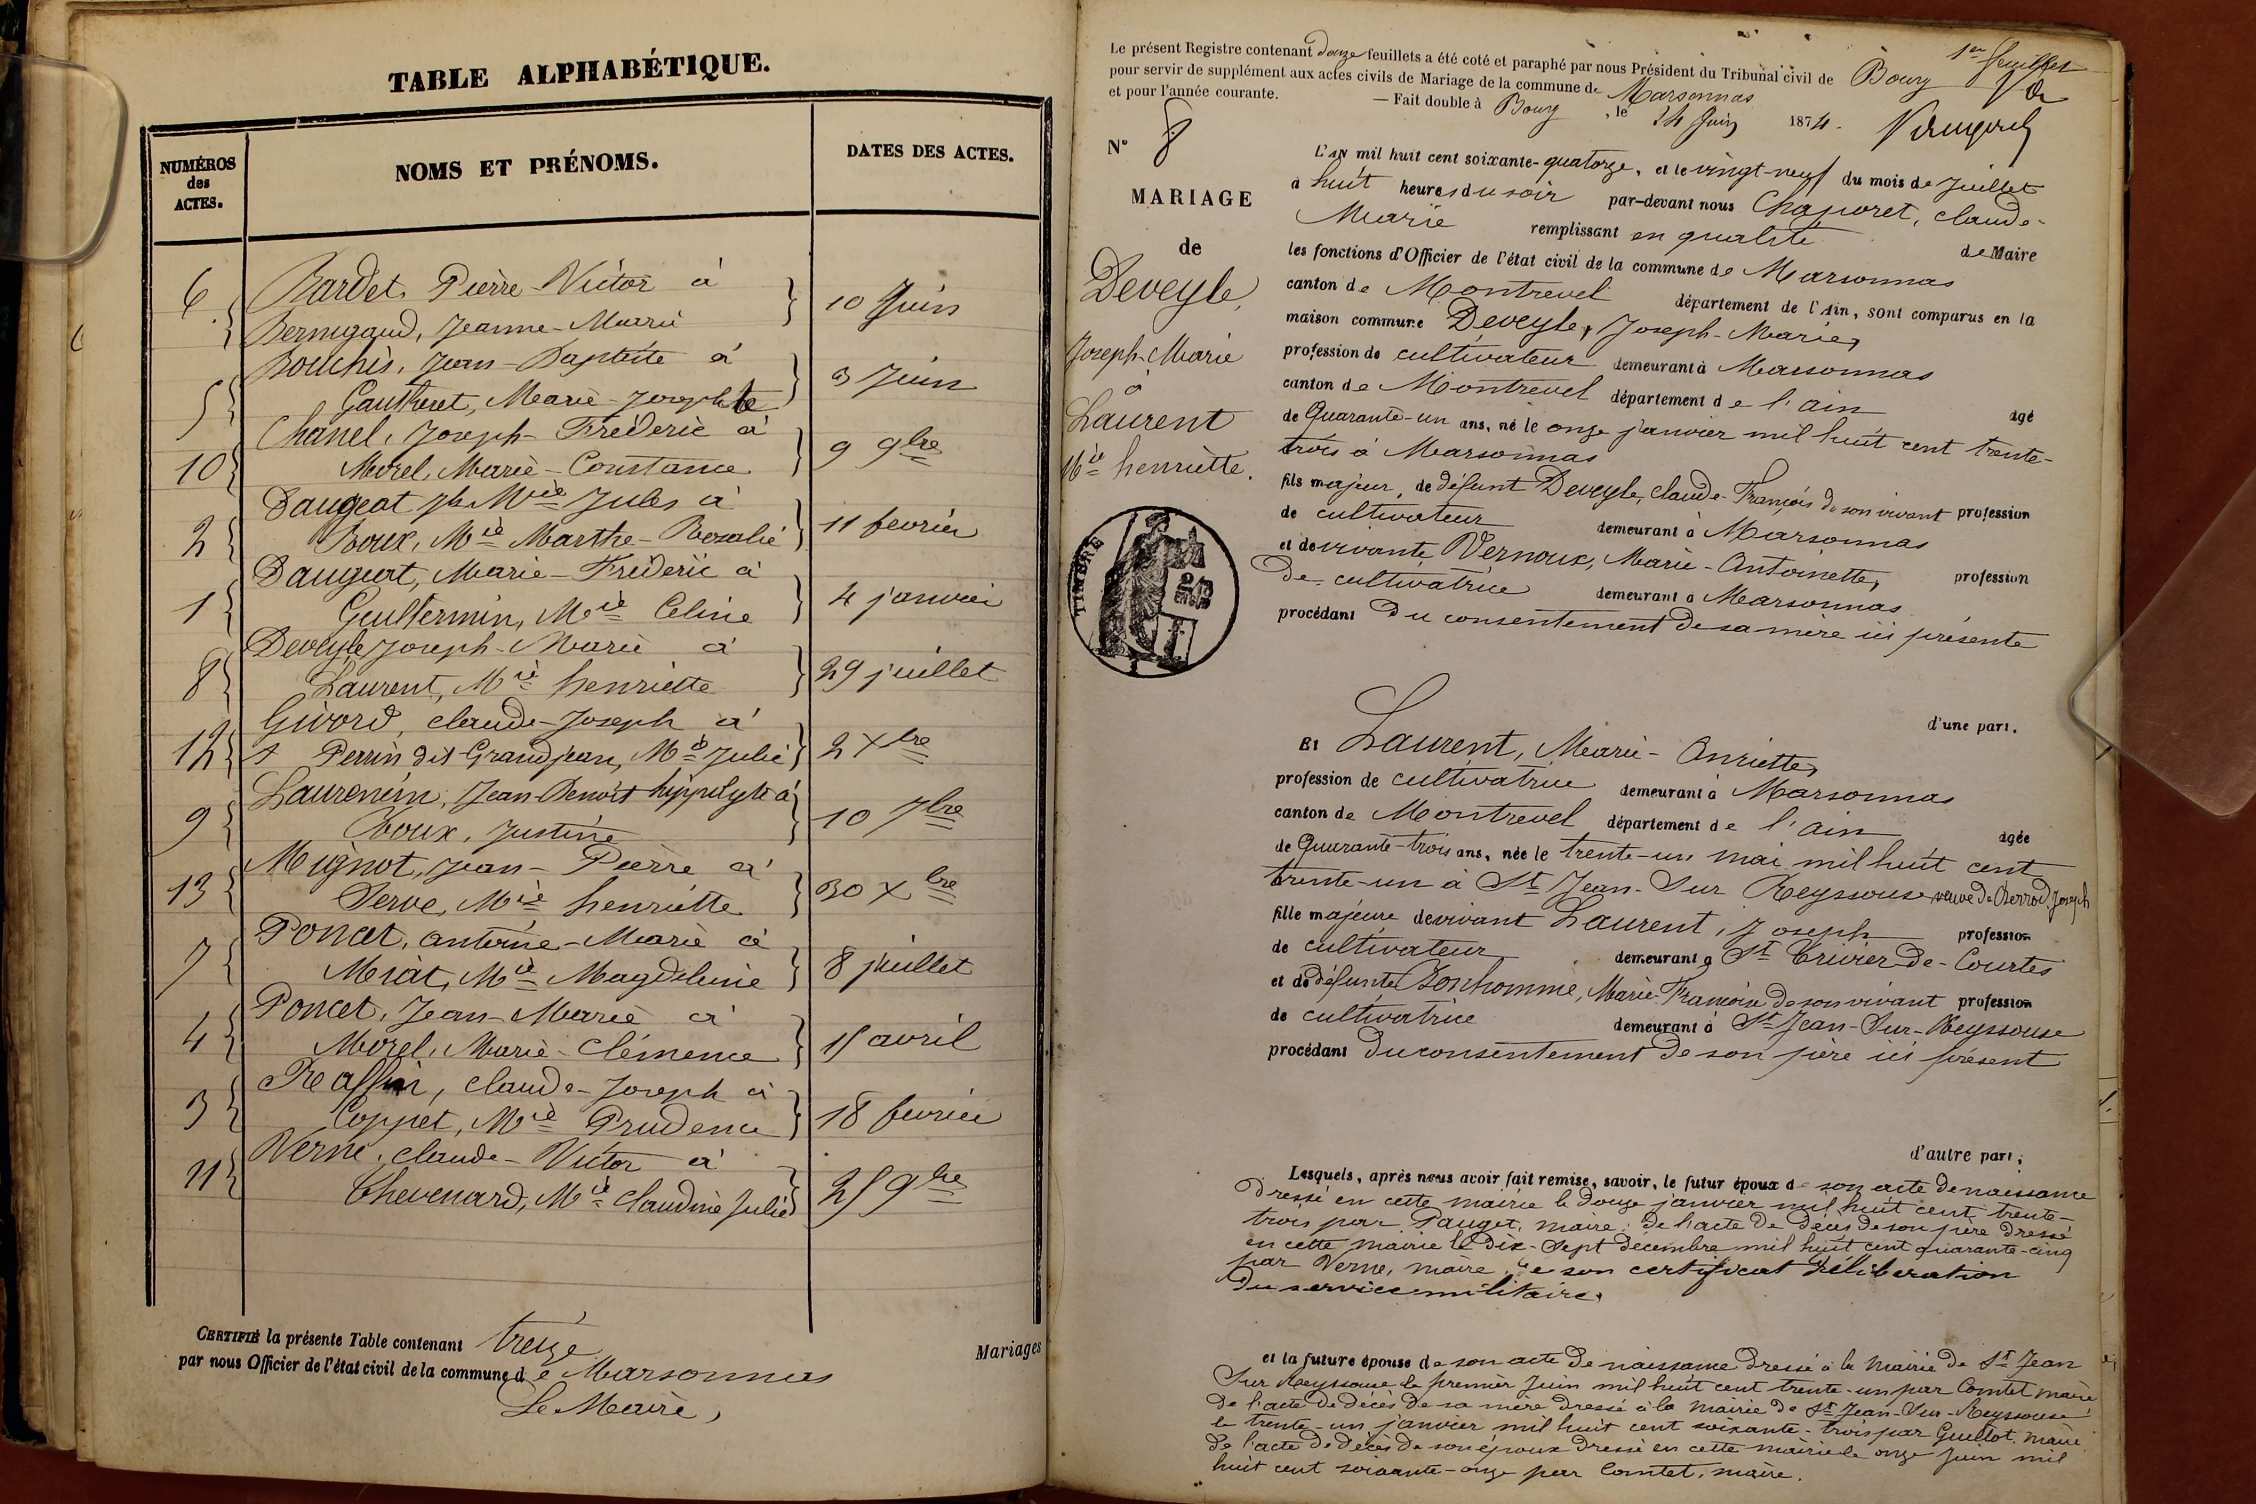 TABLE ALPHABÉTIQUE.
NUMÉROS des ACTES.
NOMS ET PRÉNOMS.
DATES DES ACTES.
6 Bardet, Pierre-Victor à
Bernigaud, Jeanne-Marie } 10 Juin
Bouchis, Jean-Baptiste à
5 Gautheret, Marie-Josephte } 3 Juin
Chanel, Joseph-Fréderic à
10 Morel, Marie-Constance } 9 9bre
Daugeat Jh Mie Jules à
2 Roux, Mie Marthe-Rosalie } 11 fevrier
Daugeat, Marie-Fréderic à
1 Guillermin, Mie Celine } 4 janvier
Deveyle Joseph-Marie à
8 Laurent, Mie henriette } 29 juillet
Givord, claude-Joseph à
12 Perrin dit Grandjean, Mie Julie } 2 Xbre
Laurencin, Jean-Benoit hippolyte à
9 Choux, Justine } 10 7bre
Mignot, Jean-Pierre à
13 Serve, Mie henriette } 30 Xbre
Poncet, antoine-Marie à
7 Merat, Mie Magdeleine } 8 juillet
Poncet, Jean-Marie à
4 Morel, Marie-Clémence } 15 avril
Reaffin, claude-Joseph à
3 Coppet, Mie Prudence } 18 fevrier
Verne, claude-Victor à
11 Chevenard, Mie Claudine Julie } 25 9bre
CERTIFIÉ la présente Table contenant treize Mariages
par nous Officier de l'état civil de la commune de Marsonnas
Le Maire,
1er feuillet
Le présent Registre contenant douze feuillets a été coté et paraphé par nous Président du Tribunal civil de Bourg
pour servir de supplément aux actes civils de Mariage de la commune de Marsonnas
et pour l'année courante. — Fait double à Bourg, le 24 Juin 1874.
N° 8
MARIAGE
de
Deveyle,
Joseph-Marie
à
Laurent
Mie henriette.
TIMBRE
L'AN mil huit cent soixante-quatorze, et le vingt-neuf du mois de Juillet
à huit heures du soir par-devant nous Chaporet, claude-
Marie remplissant en qualité de Maire
les fonctions d'Officier de l'état civil de la commune de Marsonnas
canton de Montrevel département de l'Ain, sont comparus en la
maison commune Deveyle, Joseph-Marie,
profession de cultivateur demeurant à Marsonnas
canton de Montrevel département de l'ain agé
de Quarante-un ans, né le onze janvier mil huit cent trente-
trois à Marsonnas
fils majeur, de défunt Deveyle, claude-François de son vivant profession
de cultivateur demeurant à Marsonnas
et de vivante Vernoux, Marie-Antoinette, profession
De cultivatrice demeurant à Marsonnas
procédant Du consentement de sa mère ici présente
d'une part.
Et Laurent, Marie-Anriette,
profession de cultivatrice demeurant à Marsonnas
canton de Montrevel département de l'ain agée
de Quarante-trois ans, née le trente-un mai mil huit cent
trente-un à St Jean-Sur Reyssouse veuve de Perrod, Joseph
fille majeure de vivant Laurent, Joseph profession
de cultivateur demeurant à St Trivier-De-Courtes
et de défunte Bonhomme, Marie-Françoise de son vivant profession
de cultivatrice demeurant à St Jean-Sur-Reyssouse
procédant Du consentement De son père ici présent
d'autre part;
Lesquels, après nous avoir fait remise, savoir, le futur époux de son acte de naissance
Dressé en cette mairie le douze janvier mil huit cent trente-
trois par Pauget, maire; de l'acte de décès de son père dressé
en cette mairie le dix-Sept décembre mil huit cent quarante-cinq
par Verne, maire, de son certificat déliberation
du service militaire.
et la future épouse de son acte de naissance Dressé à la Mairie de St Jean
Sur Reyssouse le premier Juin mil huit cent trente-un par Comtet, maire
De l'acte de décès de sa mère dressé à la Mairie de St Jean-Sur-Reyssouse
le trente-un janvier mil huit cent soixante-trois par Guillot, maire
de l'acte de décès de son époux dressé en cette mairie le onze Juin mil
huit cent soixante-onze par Comtet, maire.